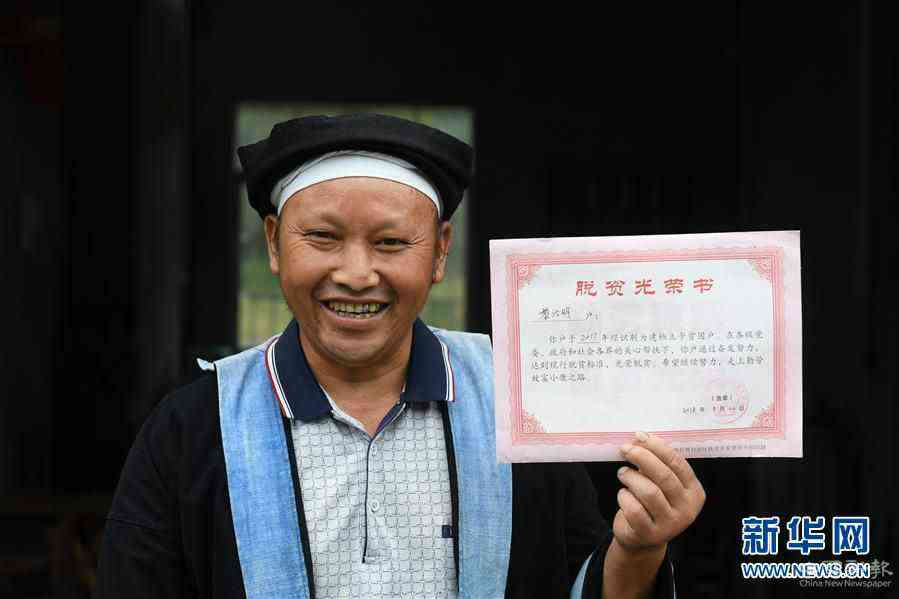 脱贫光荣书
户：
你户于2017年经识别为建档立卡贫困户，在各级党
委、政府和社会各界的关心帮扶下，你户通过奋发努力，
达到现行脱贫标准，光荣脱贫。希望继续努力，走上勤劳
致富小康之路。
（盖章）
2018年
新华网
WWW.NEWS.CN
China New Newspaper